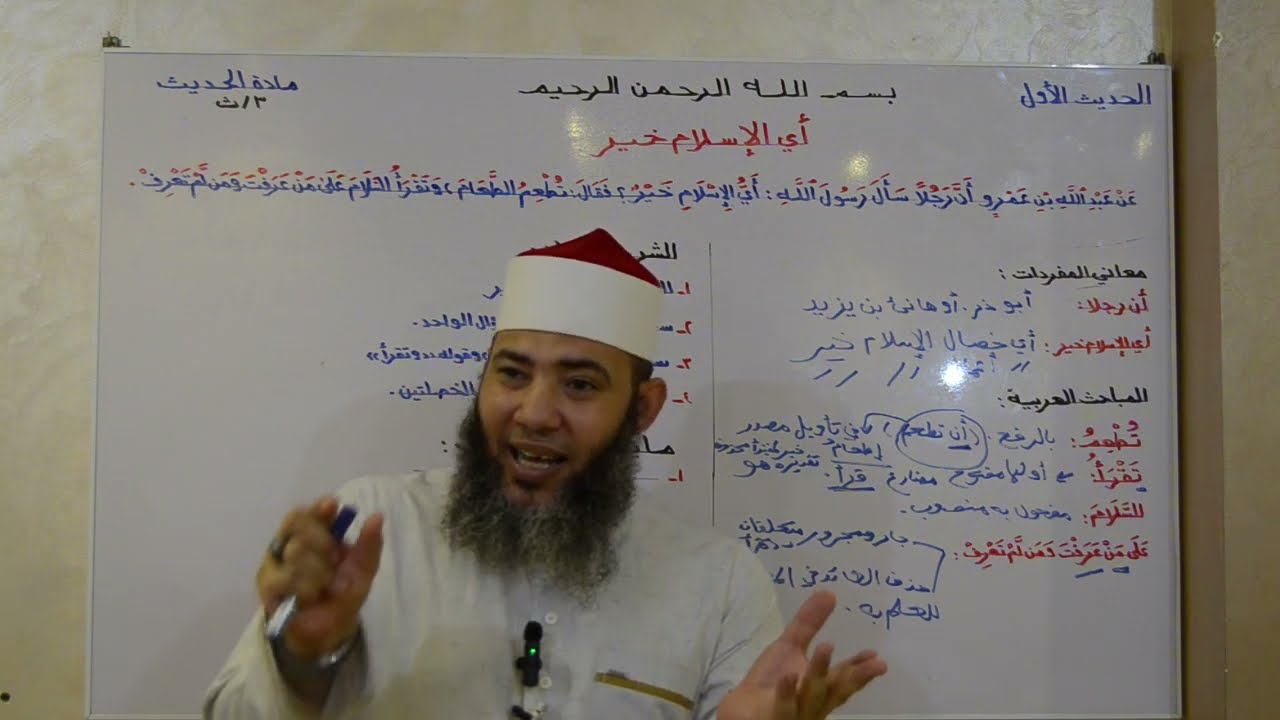 الحديث الأول
بسم الله الرحمن الرحيم
مادة الحديث
٣/ث
أي الإسلام خير
عَنْ عَبْدِ اللَّهِ بْنِ عَمْرٍو أَنَّ رَجُلًا سَأَلَ رَسُولَ اللَّهِ : أَيُّ الإِسْلَامِ خَيْرٌ؟ فَقَالَ: تُطْعِمُ الطَّعَامَ، وَتَقْرَأُ السَّلَامَ عَلَى مَنْ عَرَفْتَ وَمَن لَّمْ تَعْرِفْ .
معاني المفردات :
أن رجلا: أبو ذر. أو هانئ بن يزيد
أي الإسلام خير : أي خصال الإسلام خير
المباحث العربية :
تُطْعِمُ: بالرفع. (أن تطعم) في تأويل مصدر
إطعام خبر لمبتدأ محذوف
تَقْرَأُ: أولها مفتوح مضارع قرأ. تقديره هو
السَّلَامَ: مفعول به منصوب.
عَلَى مَنْ عَرَفْتَ وَمَن لَّمْ تَعْرِفْ: جار ومجرور متعلقان
حذف العائد في
للعلم به .
الشر
١-
٢- ال الواحد.
٣- وقوله وتقرأ»
٤- الخصلتين .
١-